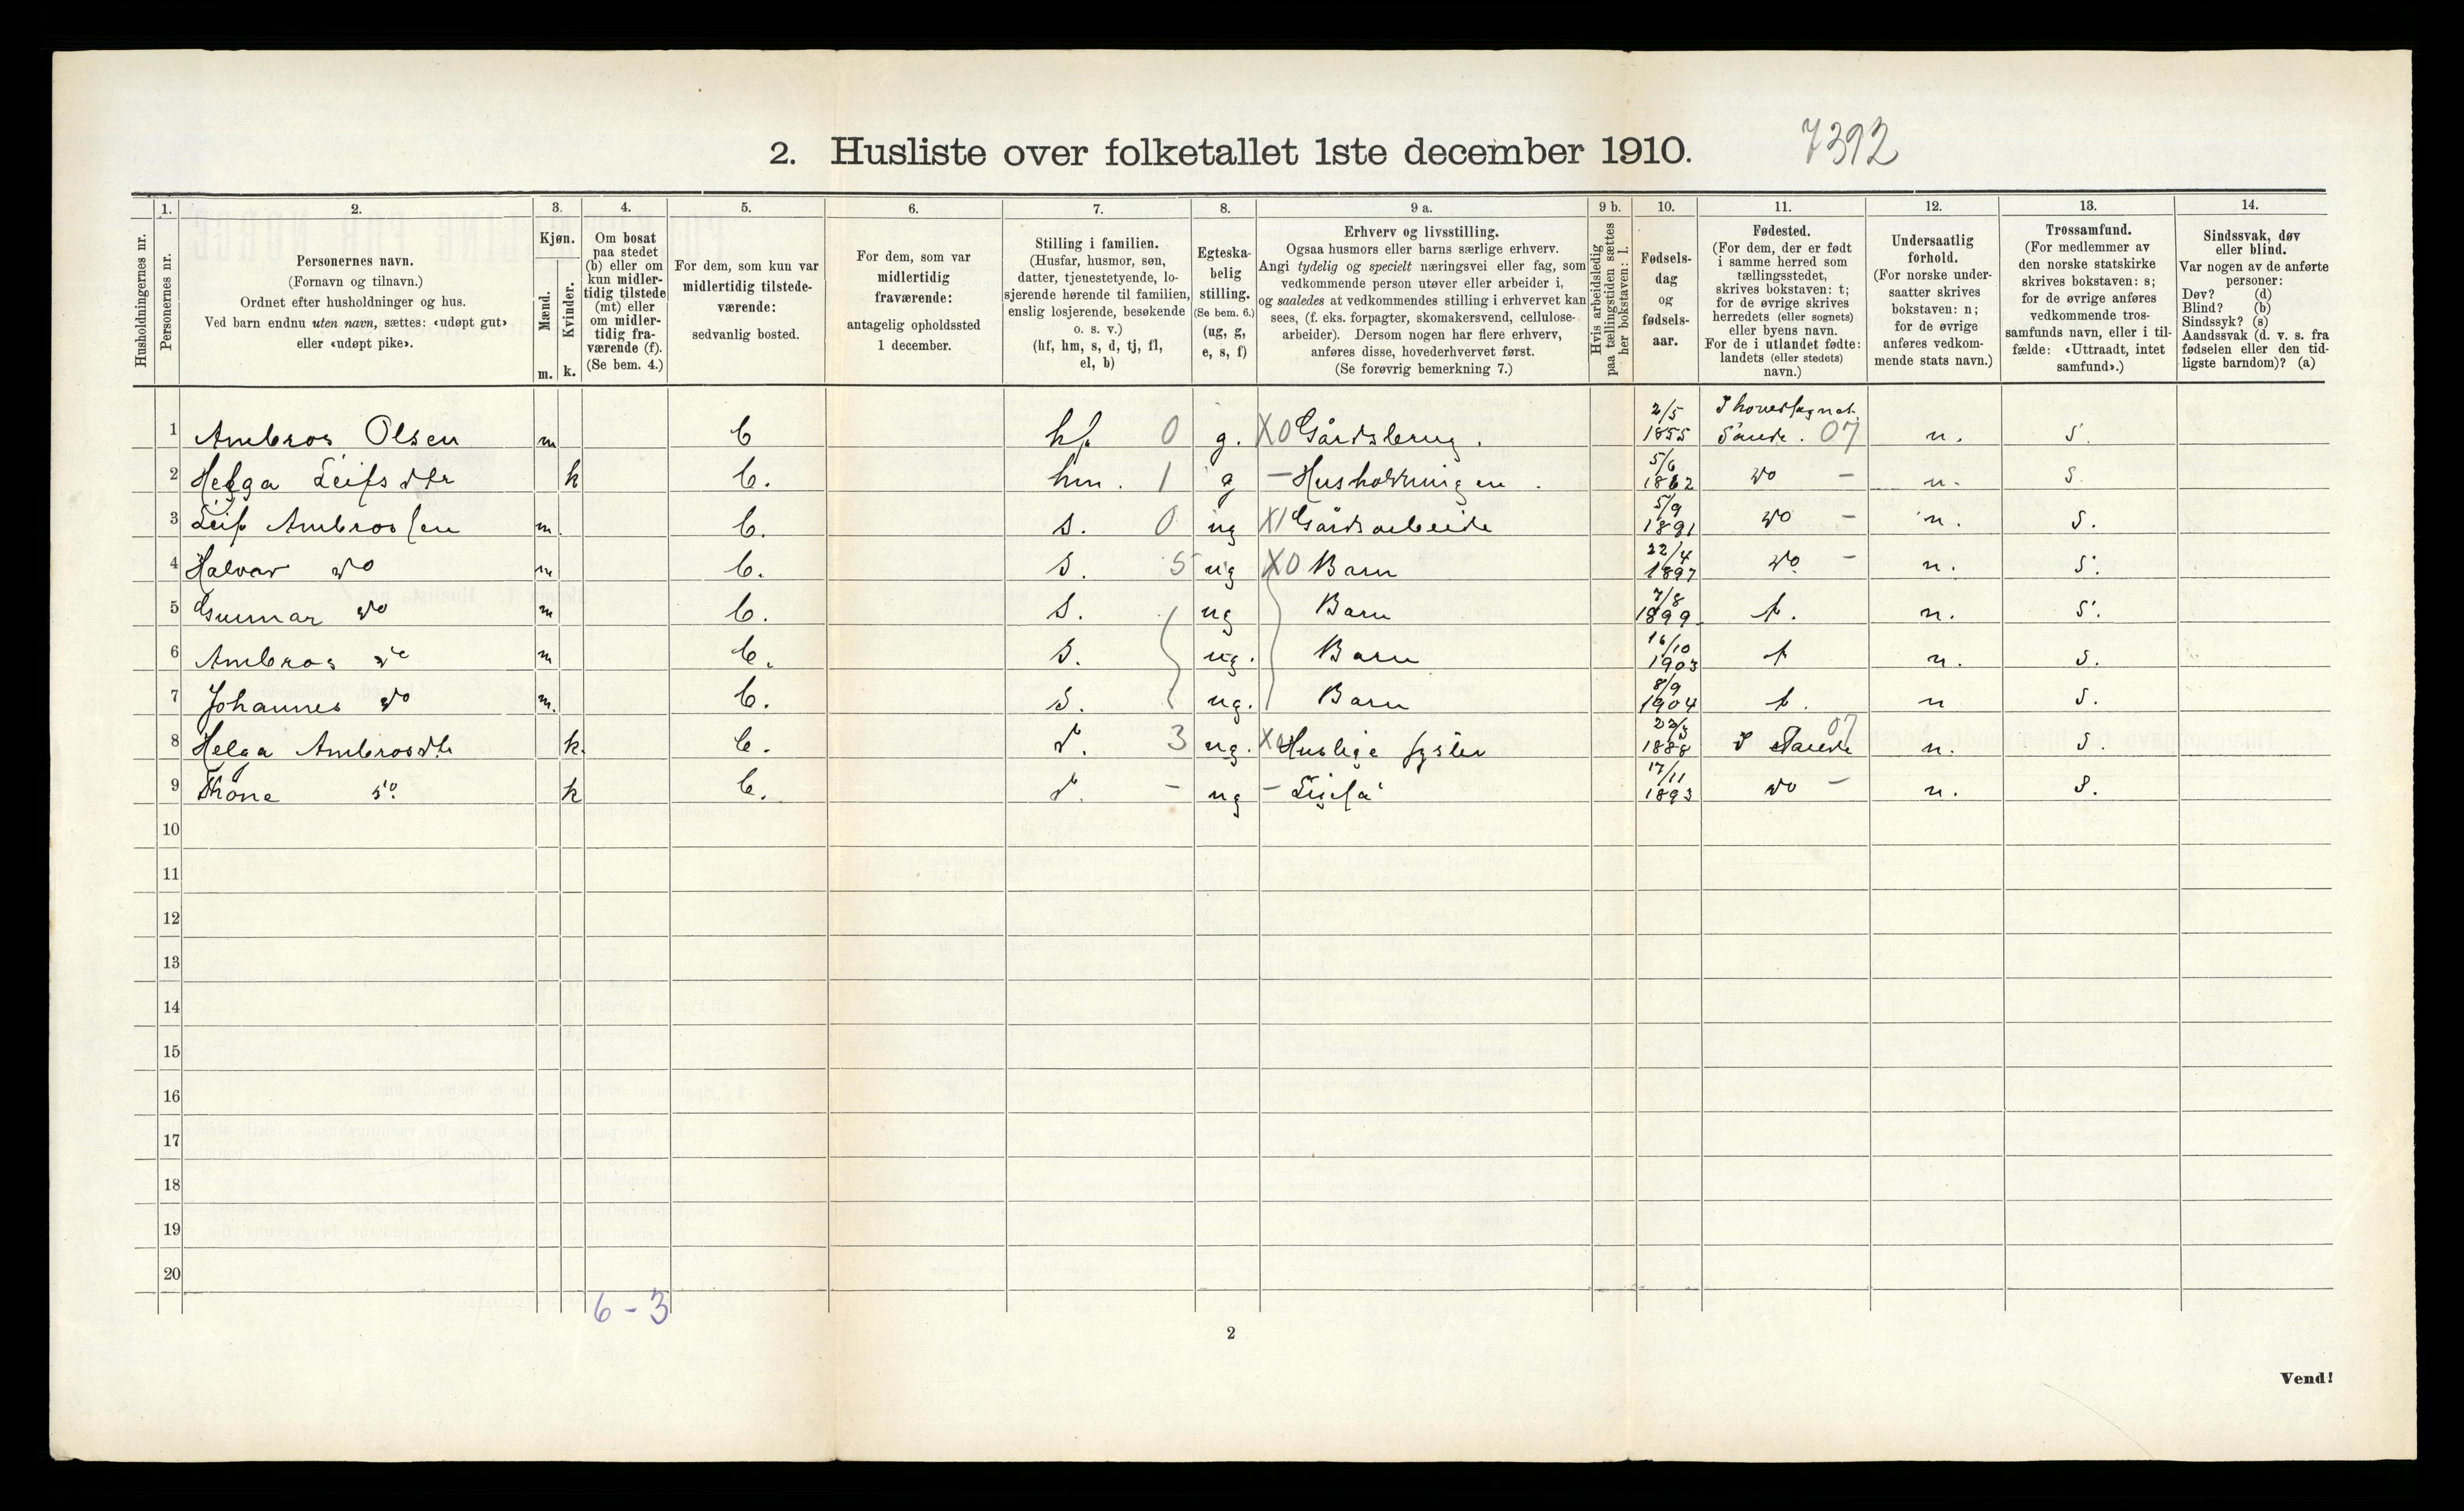 2. Husliste over folketallet 1ste december 1910. 7392
1. 2. 3. 4. 5. 6. 7. 8. 9 a. 9 b. 10. 11. 12. 13. 14.
Husholdningernes nr.
Personernes nr.
Personernes navn.
(Fornavn og tilnavn.)
Ordnet efter husholdninger og hus.
Ved barn endnu uten navn, sættes: «udøpt gut»
eller «udøpt pike».
Kjøn.
Mænd.
Kvinder.
m. k.
Om bosat
paa stedet
(b) eller om
kun midler-
tidig tilstede
(mt) eller
om midler-
tidig fra-
værende (f).
(Se bem. 4.)
For dem, som kun var
midlertidig tilstede-
værende:
sedvanlig bosted.
For dem, som var
midlertidig
fraværende:
antagelig opholdssted
1 december.
Stilling i familien.
(Husfar, husmor, søn,
datter, tjenestetyende, lo-
sjerende hørende til familien,
enslig losjerende, besøkende
o. s. v.)
(hf, hm, s, d, tj, fl,
el, b)
Egteska-
belig
stilling.
(Se bem. 6.)
(ug, g,
e, s, f)
Erhverv og livsstilling.
Ogsaa husmors eller barns særlige erhverv.
Angi tydelig og specielt næringsvei eller fag, som
vedkommende person utøver eller arbeider i,
og saaledes at vedkommendes stilling i erhvervet kan
sees, (f. eks. forpagter, skomakersvend, cellulose-
arbeider). Dersom nogen har flere erhverv,
anføres disse, hovederhvervet først.
(Se forøvrig bemerkning 7.)
Hvis arbeidsledig
paa tællingstiden sættes
her bokstaven: l.
Fødsels-
dag
og
fødsels-
aar.
Fødested.
(For dem, der er født
i samme herred som
tællingsstedet,
skrives bokstaven: t;
for de øvrige skrives
herredets (eller sognets)
eller byens navn.
For de i utlandet fødte:
landets (eller stedets)
navn.)
Undersaatlig
forhold.
(For norske under-
saatter skrives
bokstaven: n;
for de øvrige
anføres vedkom-
mende stats navn.)
Trossamfund.
(For medlemmer av
den norske statskirke
skrives bokstaven: s;
for de øvrige anføres
vedkommende tros-
samfunds navn, eller i til-
fælde: «Uttraadt, intet
samfund».)
Sindssvak, døv
eller blind.
Var nogen av de anførte
personer:
Døv? (d)
Blind? (b)
Sindssyk? (s)
Aandssvak (d. v. s. fra
fødselen eller den tid-
ligste barndom)? (a)
1 Ambros Olsen m b hf 0 g. X0 Gårdsbrug. 2/5 1855 I hovedsognet Sande. 07 n. S.
2 Helga Leifsdtr k b. hm. 1 g – Husholdningen. 5/6 1862 do – n. S.
3 Leif Ambrossen m. b. s. 0 ug X1 Gårdsarbeide 5/9 1891 do – n. S.
4 Halvar do m b. s. 5 ug X0 Barn 22/4 1897 do – n. S.
5 Gunnar do m b. s. ug Barn 7/8 1899 t. n. S.
6 Ambros do m b. s. ug. Barn 16/10 1903 t n. S.
7 Johannes do m. b. s. ug. Barn 8/9 1904 t. n S.
8 Helga Ambrosdtr k. b. d. 3 ug. Huslige sysler 1888 I Sande 07 n. S.
9 do k b. d. – ug – Ligeså 17/11 1893 do – n. S.
10
11
12
13
14
15
16
17
18
19
20
6 - 3
2
Vend!